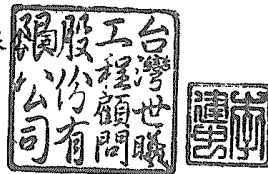 台灣世曦
工程顧問
股份有
限公司